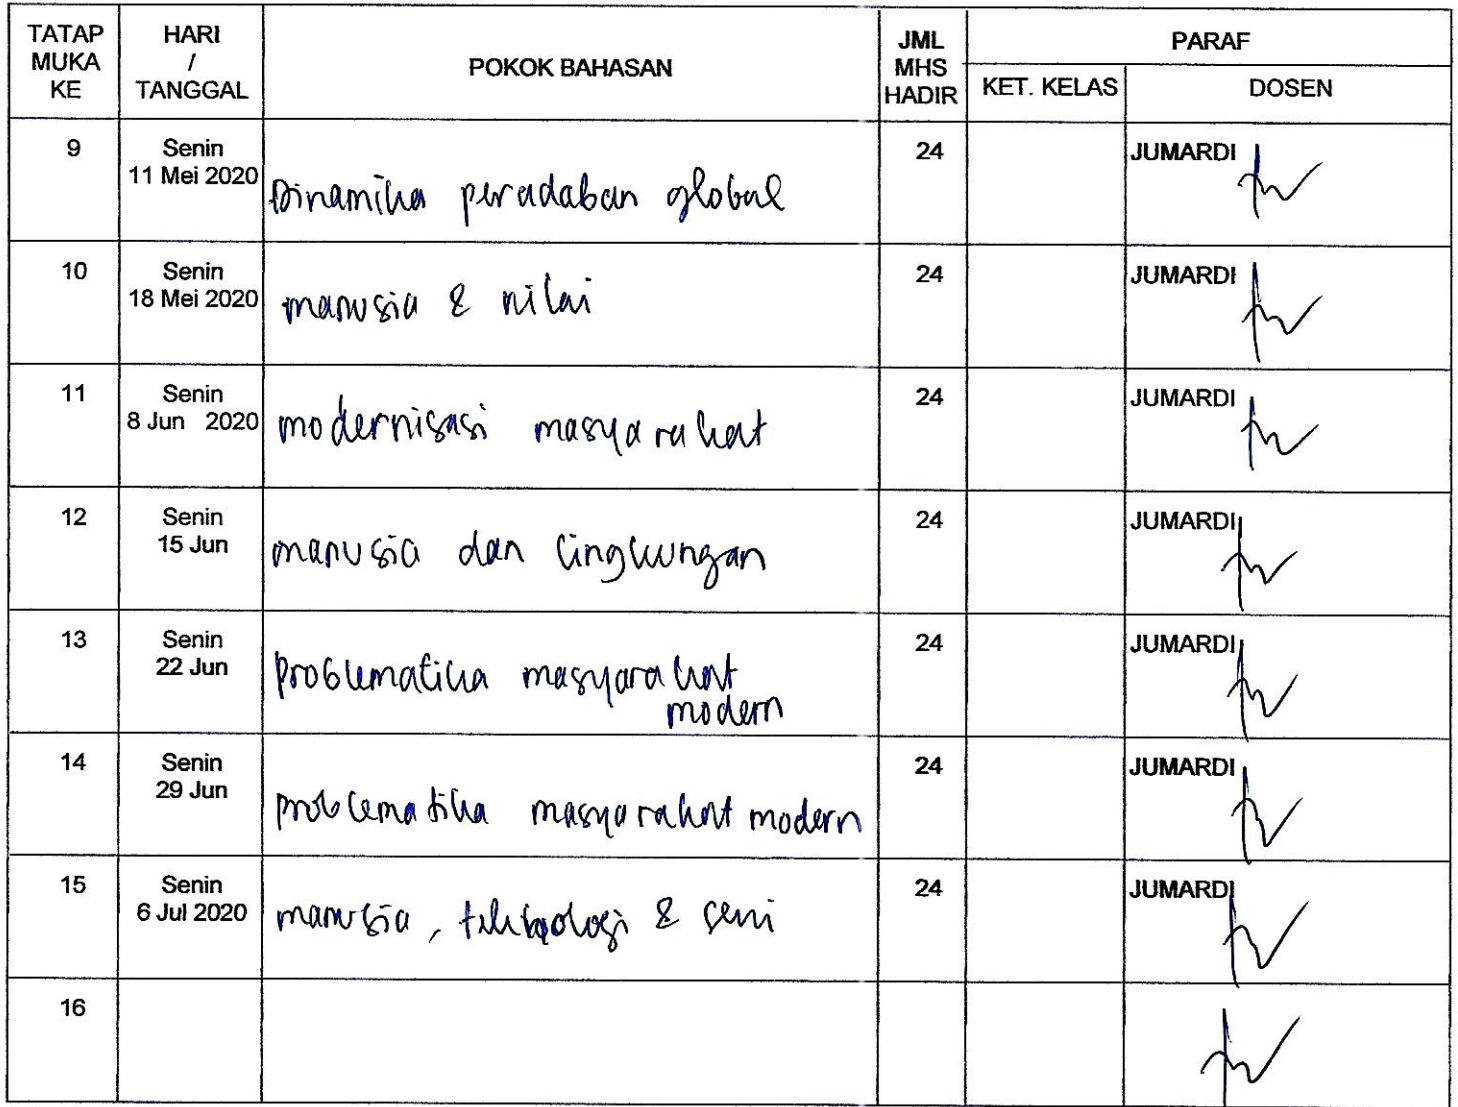 TATAP MUKA KE HARI / TANGGAL POKOK BAHASAN JML MHS HADIR PARAF
KET. KELAS DOSEN
9 Senin 11 Mei 2020 Dinamika peradaban global 24 JUMARDI
10 Senin 18 Mei 2020 manusia & nilai 24 JUMARDI
11 Senin 8 Jun 2020 modernisasi masyarakat 24 JUMARDI
12 Senin 15 Jun manusia dan lingkungan 24 JUMARDI
13 Senin 22 Jun problematika masyarakat modern 24 JUMARDI
14 Senin 29 Jun problematika masyarakat modern 24 JUMARDI
15 Senin 6 Jul 2020 manusia, teknologi & seni 24 JUMARDI
16